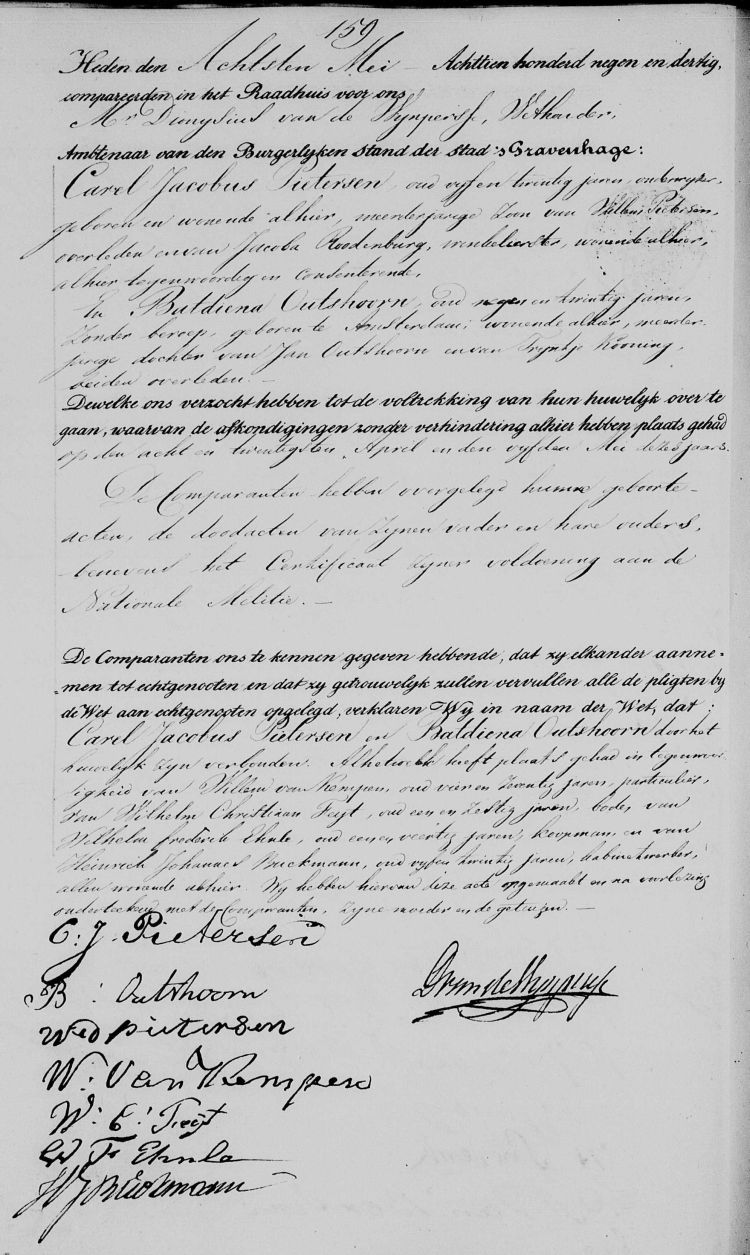 159
Heden den Achtsten Mei — Achttien honderd negen en dertig,
compareerden in het Raadhuis voor ons
Mr Dionysius van de Wynpersse, Wethouder,
Ambtenaar van den Burgerlyken Stand der Stad 's Gravenhage:
Carel Jacobus Pietersen, oud vyf en twintig jaren, onderwyzer,
geboren en wonende alhier, meerderjarige Zoon van Willem Pietersen,
overleden en van Jacoba Roodenburg, winkelierster, wonende alhier,
alhier tegenwoordig en consenterende,
En Baldiena Outshoorn, oud negen en twintig jaren,
Zonder beroep, geboren te Amsterdam, wonende alhier, meerder-
jarige dochter van Jan Outshoorn en van Tryntje Kooning,
beiden overleden. —
Dewelke ons verzocht hebben tot de voltrekking van hun huwelyk over te
gaan, waarvan de afkondigingen zonder verhindering alhier hebben plaats gehad
op den acht en twintigsten April en den vyfden Mei dezes jaars.
De Comparanten hebben overgelegd hunne geboorte-
acten, de doodacten van Zynen vader en hare ouders,
benevens het Certificaat Zyner voldoening aan de
Nationale Militie. —
De Comparanten ons te kennen gegeven hebbende, dat zy elkander aanne-
men tot echtgenooten en dat zy getrouwelyk zullen vervullen alle de pligten by
de Wet aan echtgenooten opgelegd, verklaren Wy in naam der Wet, dat:
Carel Jacobus Pietersen en Baldiena Outshoorn door het
huwelyk zyn verbonden. Alhetwelk heeft plaats gehad in tegenwoor
digheid van Willem van Kempen, oud vier en Zeventig jaren, particulier,
van Wilhelm Christiaan Feyt, oud een en Zestig jaren, bode, van
Wilhelm Frederik Ehnle, oud een en veertig jaren, koopman, en van
Heinrich Johannes Bruckmann, oud vyf en twintig jaren, kabinetwerker,
allen wonende alhier. Wy hebben hiervan deze acte opgemaakt en na voorlezing
onderteekend met de Comparanten, Zyne moeder en de getuigen. —
C. J. Pietersen
B: Outshoorn
Wed pietersen
W: Van Kempen
W: C: Feyt
W F Ehnle
H J Bruckmann